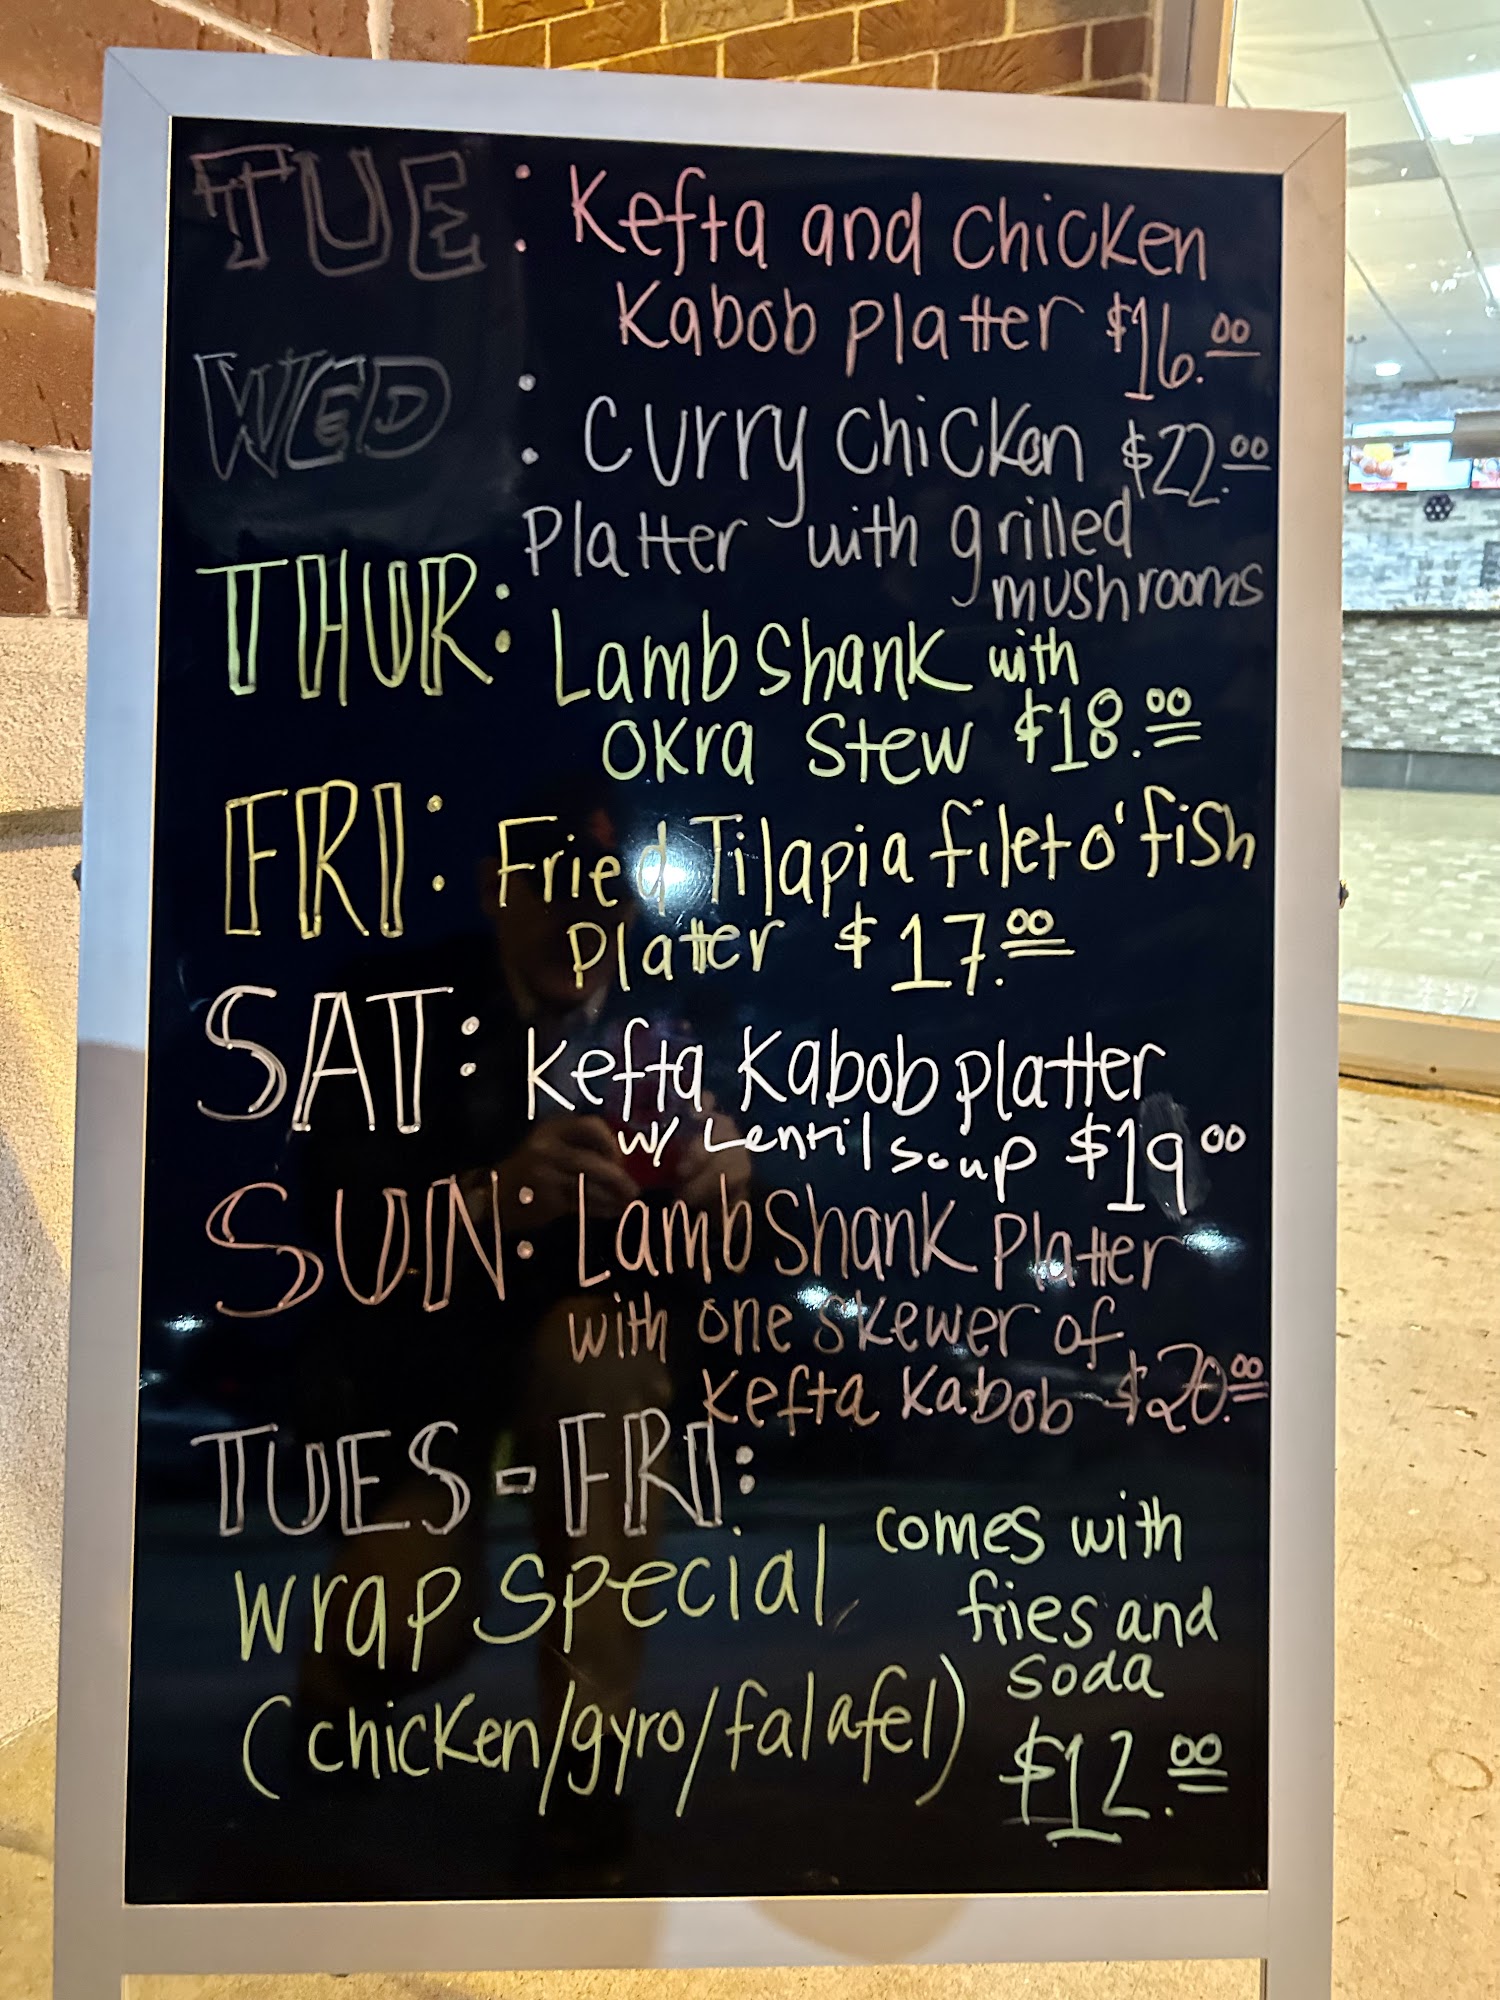 TUE: Kefta and chicken
Kabob platter $16.00
WED: Curry chicken $22.00
Platter with grilled
mushrooms
THUR: Lamb shank with
okra stew $18.00
FRI: Fried Tilapia filet o' fish
Platter $17.00
SAT: Kefta Kabob platter
w/ Lentil soup $19 00
SUN: Lamb Shank Platter
with one skewer of
Kefta Kabob $20.00
TUES-FRI:
Wrap Special
(chicken/gyro/falafel)
comes with
fries and
soda
$12.00